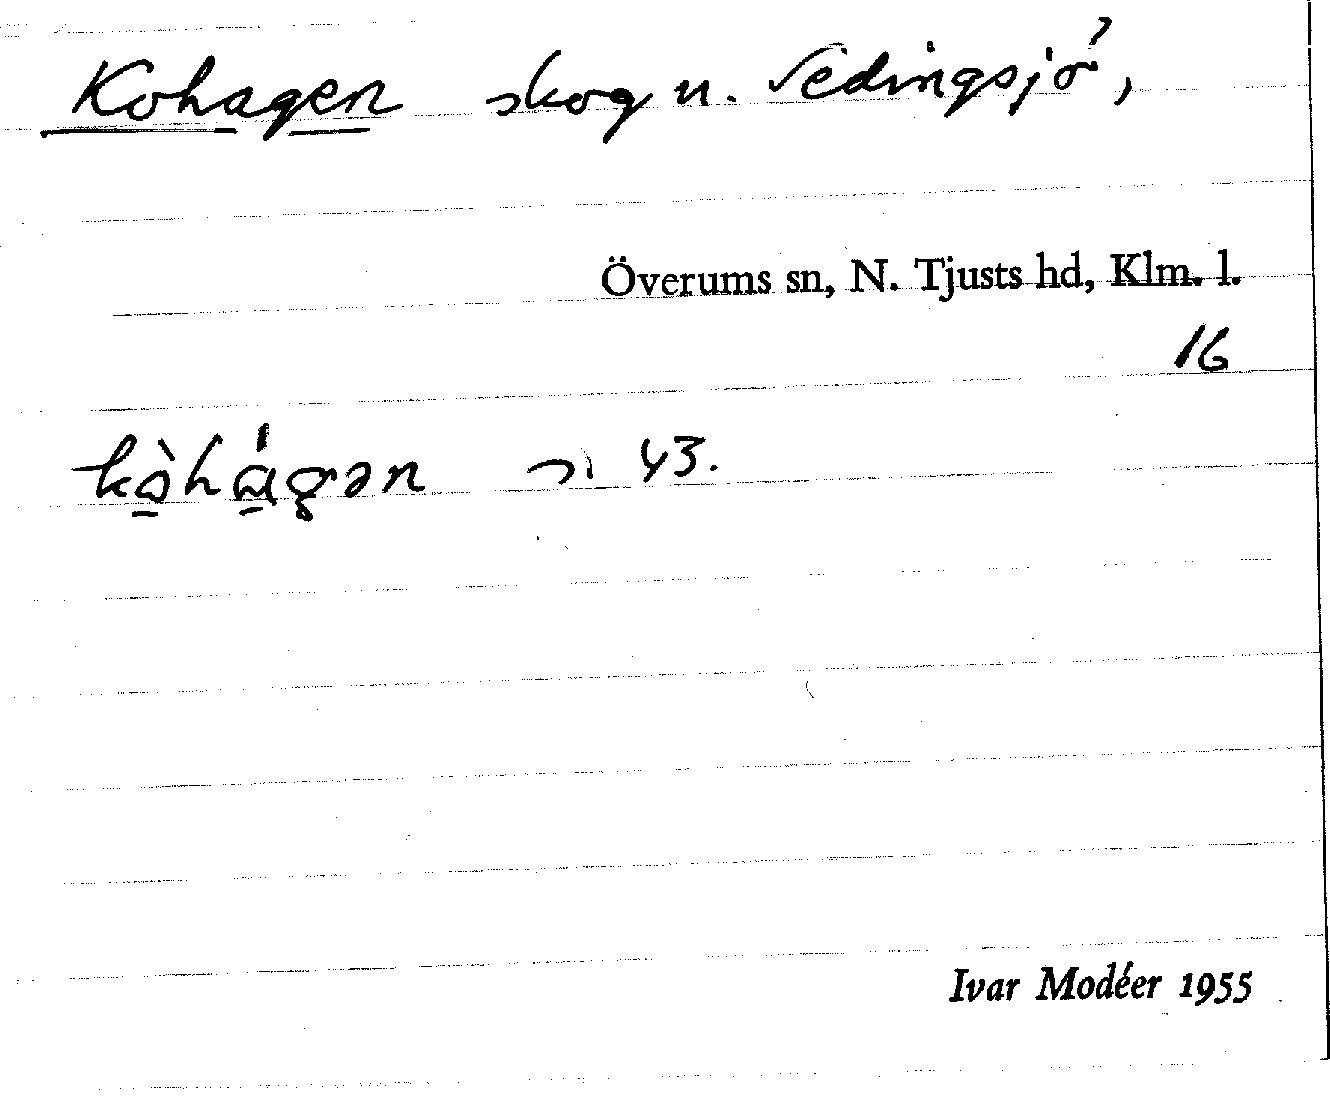 Kohagen skog u. Vedingsjö,
Överums sn, N. Tjusts hd, Klm. l.
16
43.
Ivar Modéer 1955